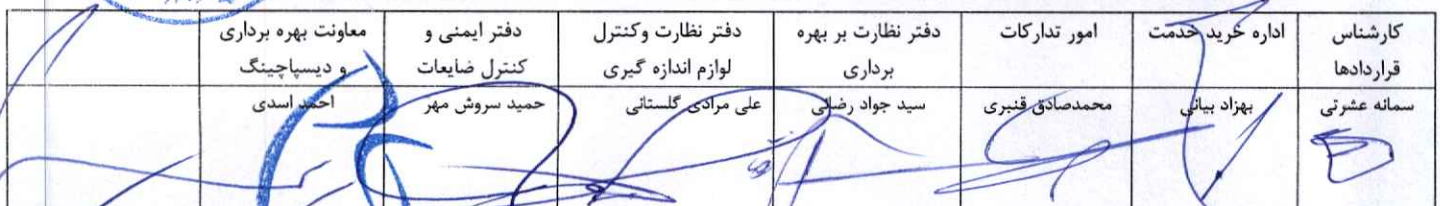 کارشناس قراردادها
اداره خرید خدمت
امور تدارکات
دفتر نظارت بر بهره برداری
دفتر نظارت وکنترل لوازم اندازه گیری
دفتر ایمنی و کنترل ضایعات
معاونت بهره برداری و دیسپاچینگ
سمانه عشرتی
بهزاد بیاتی
محمدصادق قنبری
سید جواد رضائی
علی مرادی گلستانی
حمید سروش مهر
احمد اسدی